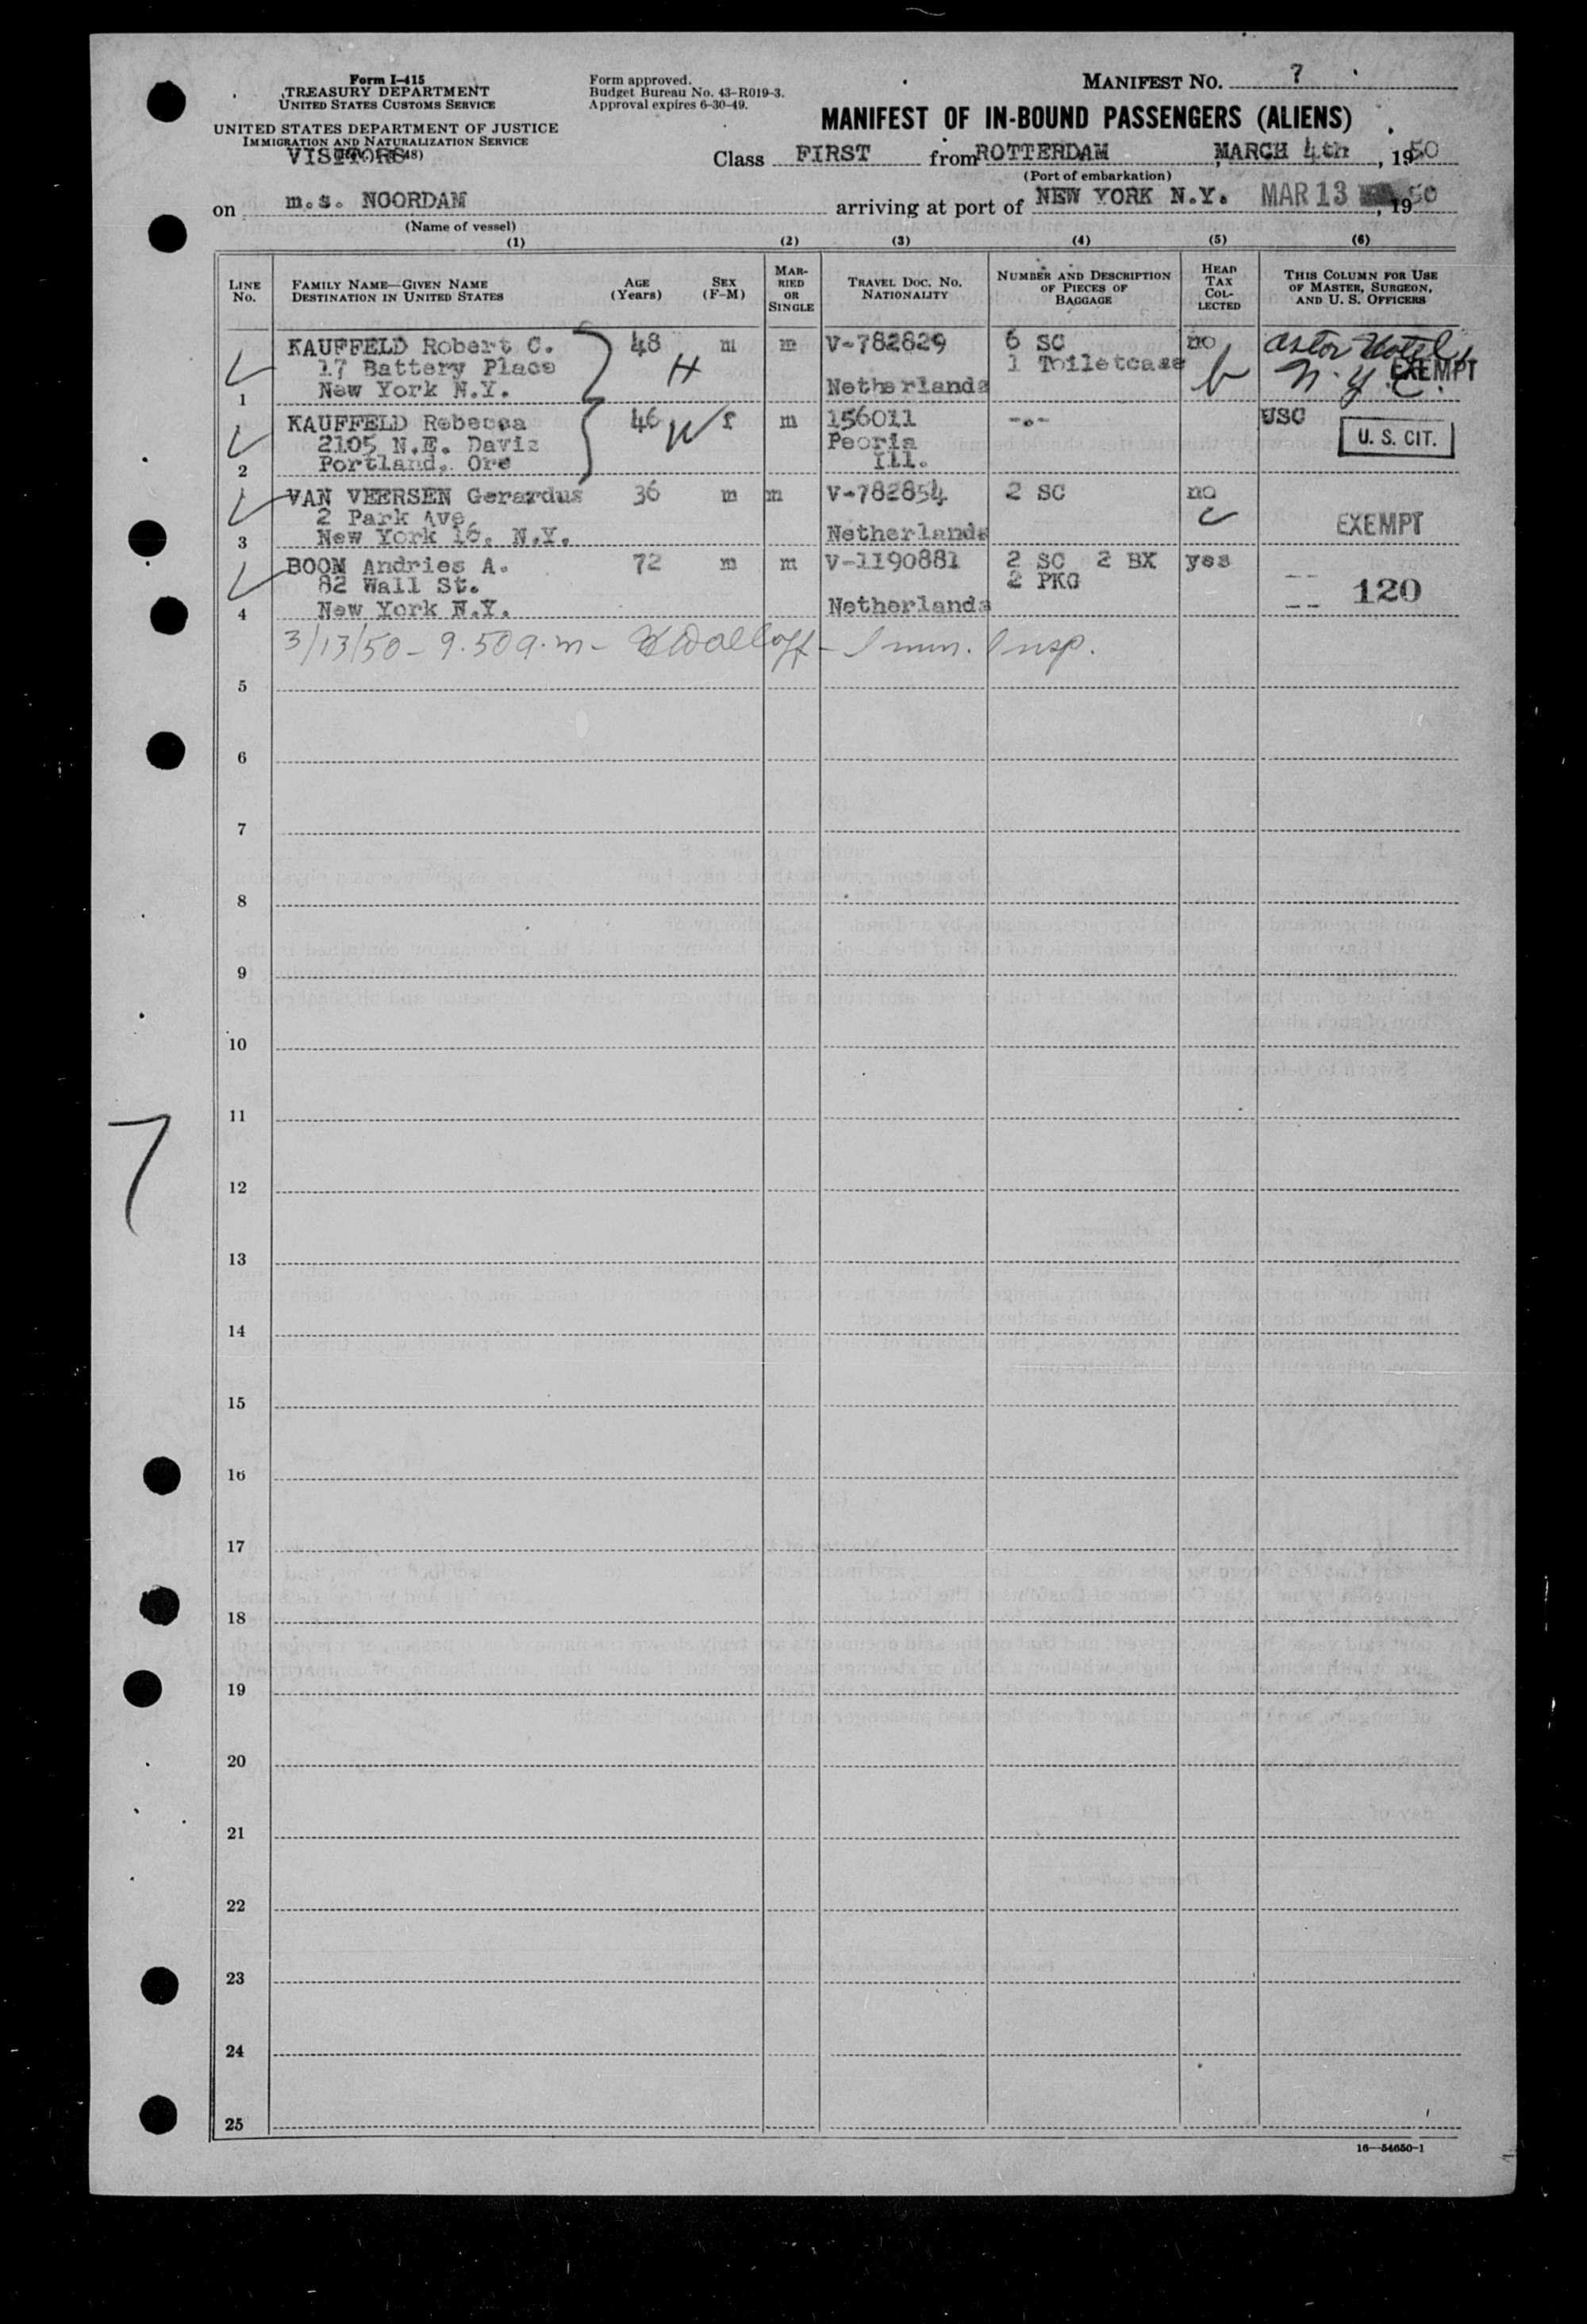 Form I-415
TREASURY DEPARTMENT
UNITED STATES CUSTOMS SERVICE
UNITED STATES DEPARTMENT OF JUSTICE
IMMIGRATION AND NATURALIZATION SERVICE
VISITORS
Form approved.
Budget Bureau No. 43-R019-3.
Approval expires 6-30-49.
MANIFEST NO. 7
MANIFEST OF IN-BOUND PASSENGERS (ALIENS)
Class FIRST from ROTTERDAM, MARCH 4th, 1950
(Port of embarkation)
on m.s. NOORDAM arriving at port of NEW YORK N.Y. MAR 13, 1950
(Name of vessel)
(1) (2) (3) (4) (5) (6)
LINE NO. FAMILY NAME—GIVEN NAME DESTINATION IN UNITED STATES AGE (Years) SEX (F-M) MARRIED OR SINGLE TRAVEL DOC. NO. NATIONALITY NUMBER AND DESCRIPTION OF PIECES OF BAGGAGE HEAD TAX COLLECTED THIS COLUMN FOR USE OF MASTER, SURGEON, AND U. S. OFFICERS
KAUFFELD Robert C. 48 m m V-782829 6 SC no Astor Hotel
17 Battery Place H 1 Toiletcase N.Y.C. EXEMPT
1 New York N.Y. Netherlands
KAUFFELD Rebecca 46 W f m 156011 -.- USC
2105 N.E. Davis Peoria U. S. CIT.
2 Portland, Ore Ill.
VAN VEERSEN Gerardus 36 m m V-782854 2 SC no
2 Park Ave. EXEMPT
3 New York 16, N.Y. Netherlands
BOON Andries A. 72 m m V-1190881 2 SC 2 BX yes
82 Wall St. 2 PKG -- 120
4 New York N.Y. Netherlands --
3/13/50 - 9.50 a.m - - Imm. Insp.
5
6
7
8
9
10
11
7
12
13
14
15
16
17
18
19
20
21
22
23
24
25
16—54650-1